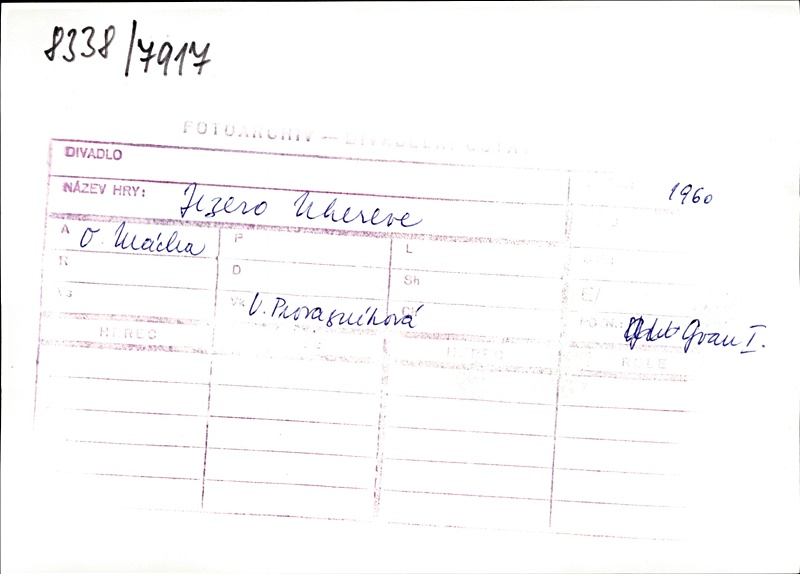 8338/7917
FOTOARCHIV — DIVADELNÍ ÚSTAV
DIVADLO
NÁZEV HRY: Jezero Ukereve 1960
A O. Mácha P L
R D Sh
Vs Vk V. Provazníková
Gvan I.
HEREC HEREC ROLE